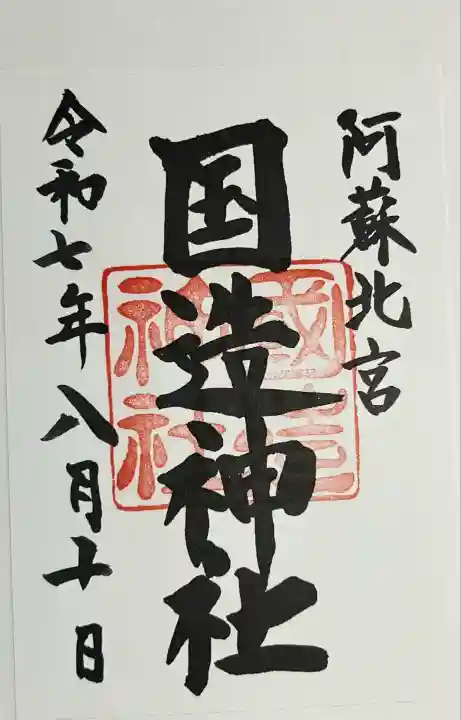 阿蘇北宮
国造神社
國造神社
令和七年八月十日